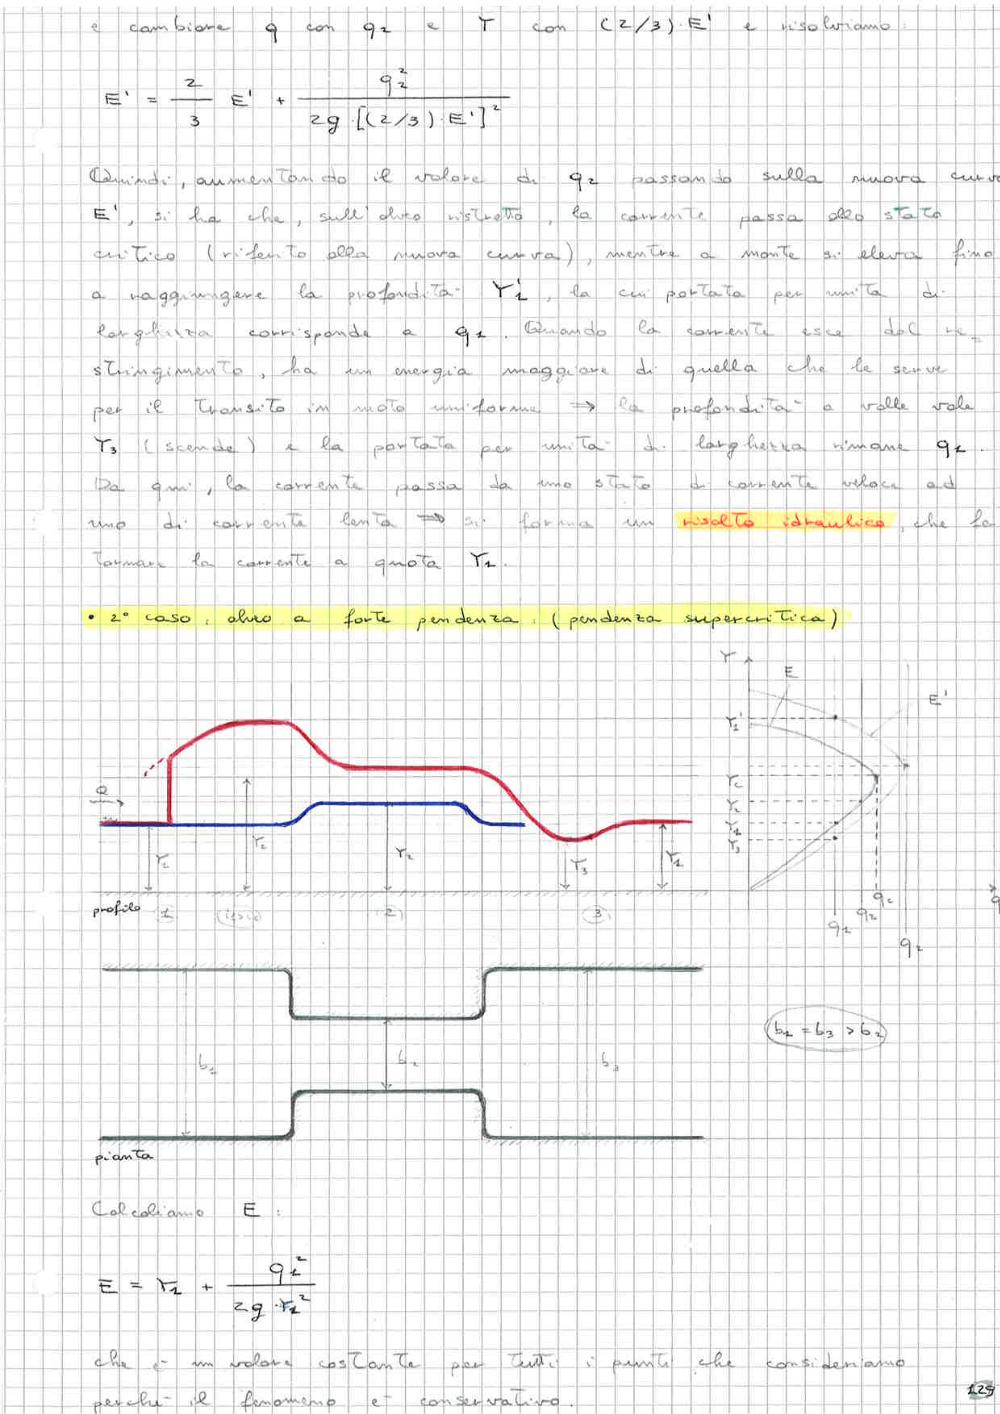 e cambiare q con q2 e Y con (2/3)·E' e risolviamo:
E' = 2/3 E' + q2² / 2g·[(2/3)·E']²
Quindi, aumentando il valore di q2 passando sulla nuova curva
E', si ha che, sull'alveo ristretto, la corrente passa allo stato
critico (riferito alla nuova curva), mentre a monte si eleva fino
a raggiungere la profondità Y1', la cui portata per unità di
larghezza corrisponde a q1. Quando la corrente esce dal re=
stringimento, ha un energia maggiore di quella che le serve
per il transito in moto uniforme => la profondità a valle vale
Y3 (scende) e la portata per unità di larghezza rimane q1.
Da qui, la corrente passa da uno stato di corrente veloce ad
uno di corrente lenta => si forma un risalto idraulico, che fa
tornare la corrente a quota Y1.
• 2° caso: alveo a forte pendenza: (pendenza supercritica)
Y
E
E'
Y1'
Yc
Y2
Y1
Y3
q1
q2
qc
q2
q
Q
Y1
Y2
Y3
Y1
profilo
1
2
3
b1
b2
b3
b1 = b3 > b2
pianta
Calcoliamo E:
E = Y1 + q1² / 2g·Y1²
che è un valore costante per tutti i punti che consideriamo
perché il fenomeno è conservativo.
129